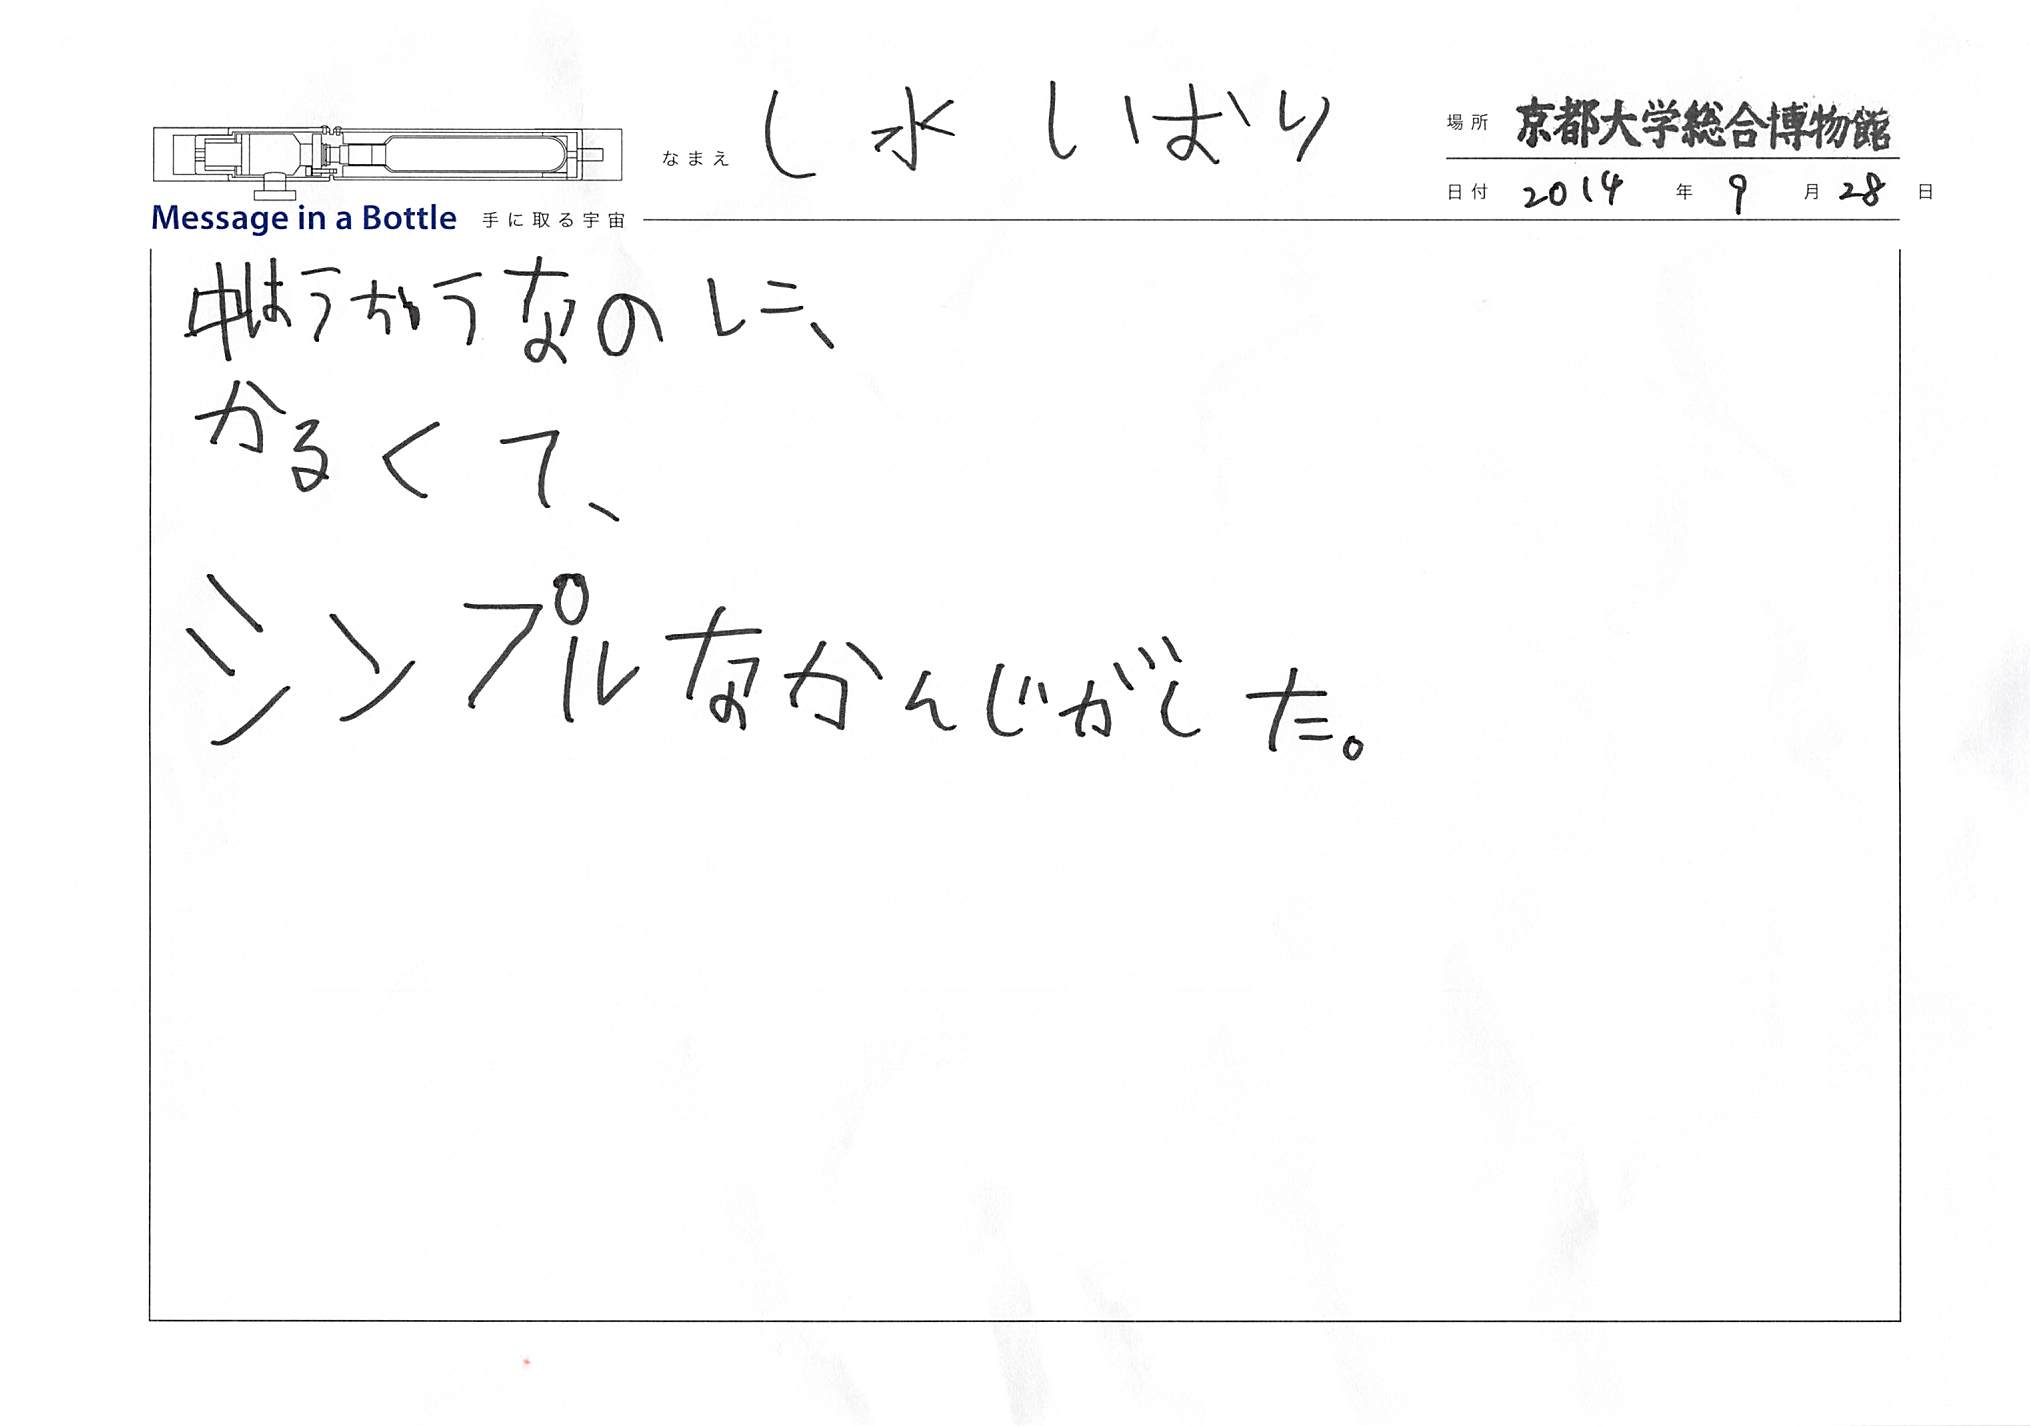 なまえ し水 いおり
場所 京都大学総合博物館
日付 2014 年 9 月 28 日
Message in a Bottle 手に取る宇宙
中はうちゅうなのに、
かるくて、
シンプルなかんじがした。